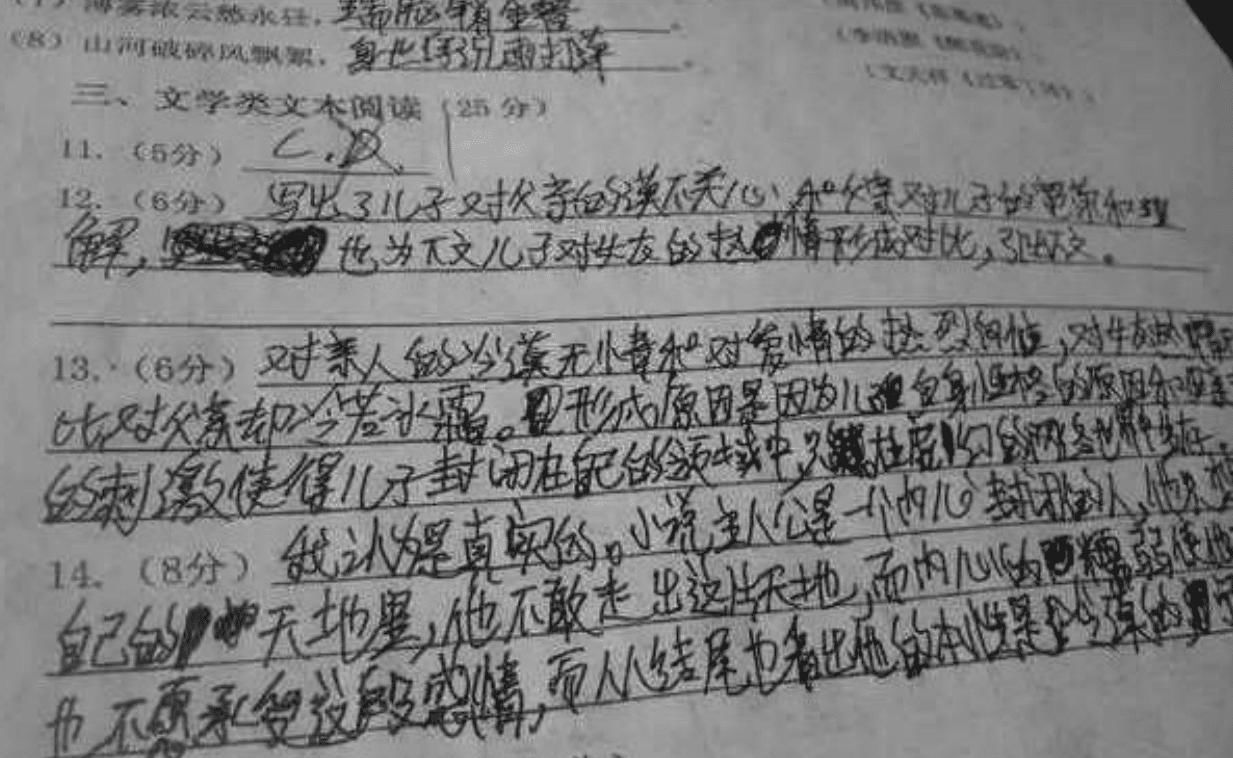 (7) 薄雾浓云愁永昼，瑞脑销金兽。
(8) 山河破碎风飘絮，身世浮沉雨打萍。
三、文学类文本阅读（25分）
11.（5分） C.D.
12.（6分） 写出了儿子对父亲的漠不关心，和父亲对儿子的和理
解，也为下文儿子对女友的热情形成对比，引出下文。
13.（6分） 对亲人的冷漠无情和对爱情的热烈，对女友热
比，对父亲却冷若冰霜。形成原因是因为儿自身性格的原因和
的刺激使得儿子封闭在自己的领域中，只在虚幻的网络世界
14.（8分） 我认为是真实的。小说主人公是一个内心封闭的人，他
自己的天地里，他不敢走出这片天地，而内心的弱使他
不愿承受这段感情，而从结尾也看出他的本性是冷漠的